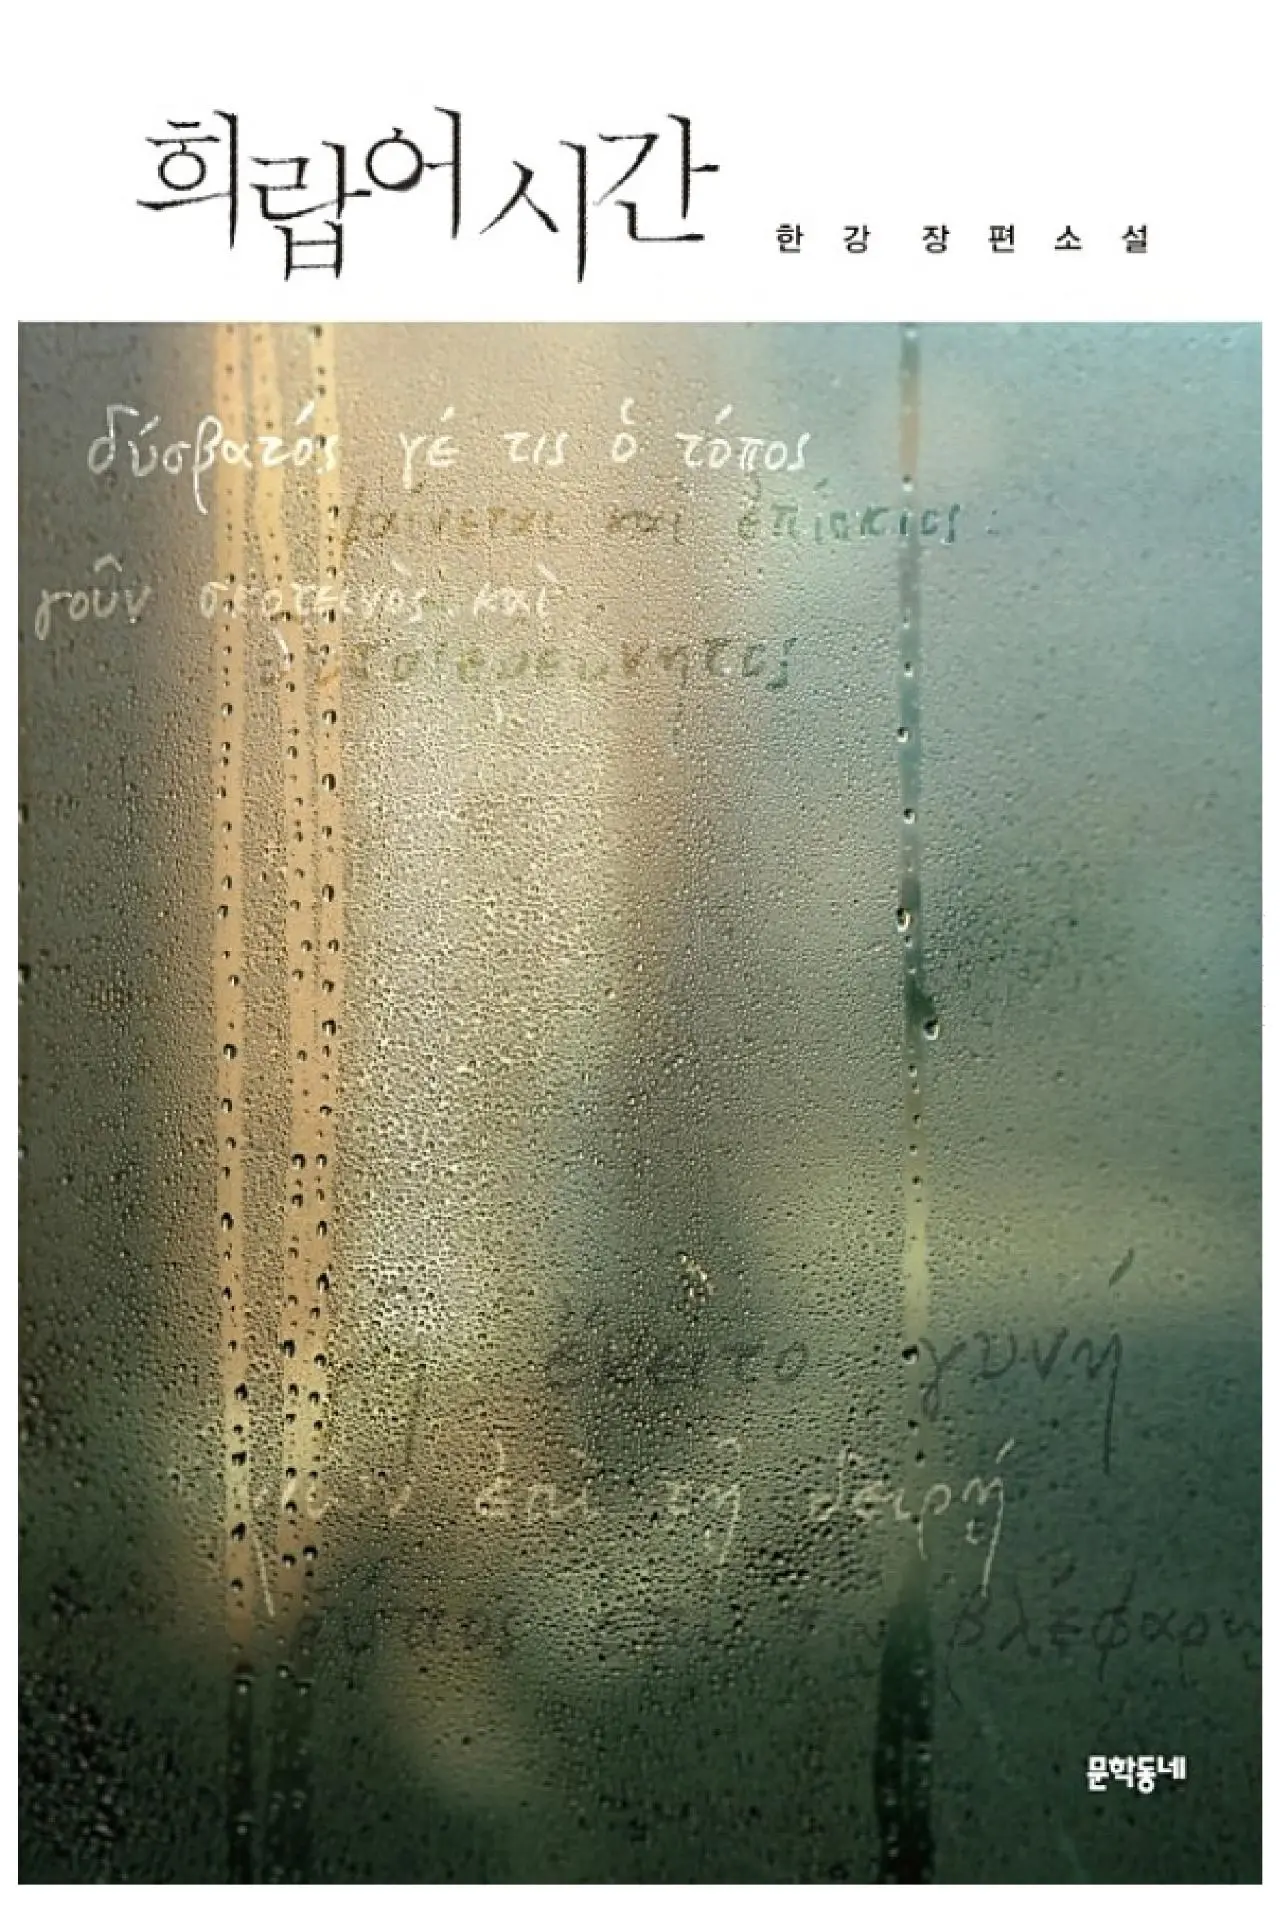 희랍어 시간
한강 장편소설
δύσβατός γέ τις ὁ τόπος
φαίνεται καὶ ἐπίσκιος·
γοῦν σκοτεινὸς καὶ
γυνή
ἐπὶ τῇ δειρῇ
βλέφαρη
문학동네